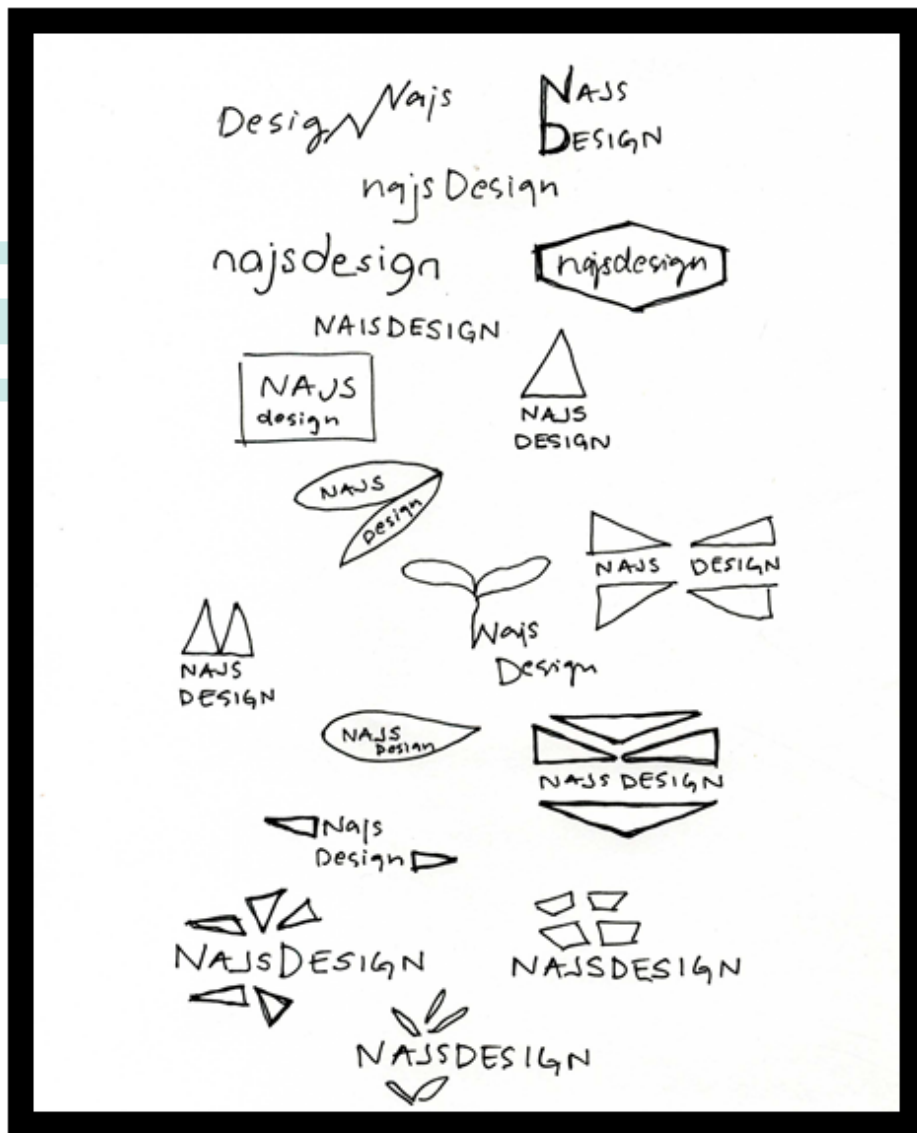 Design Najs
NAJS
DESIGN
najs Design
najsdesign
najsdesign
NAISDESIGN
NAJS
design
NAJS
DESIGN
NAJS
Design
NAJS DESIGN
Najs
Design
NAJS
DESIGN
NAJS
Design
NAJS DESIGN
Najs
Design
NAJSDESIGN
NAJSDESIGN
NAJSDESIGN